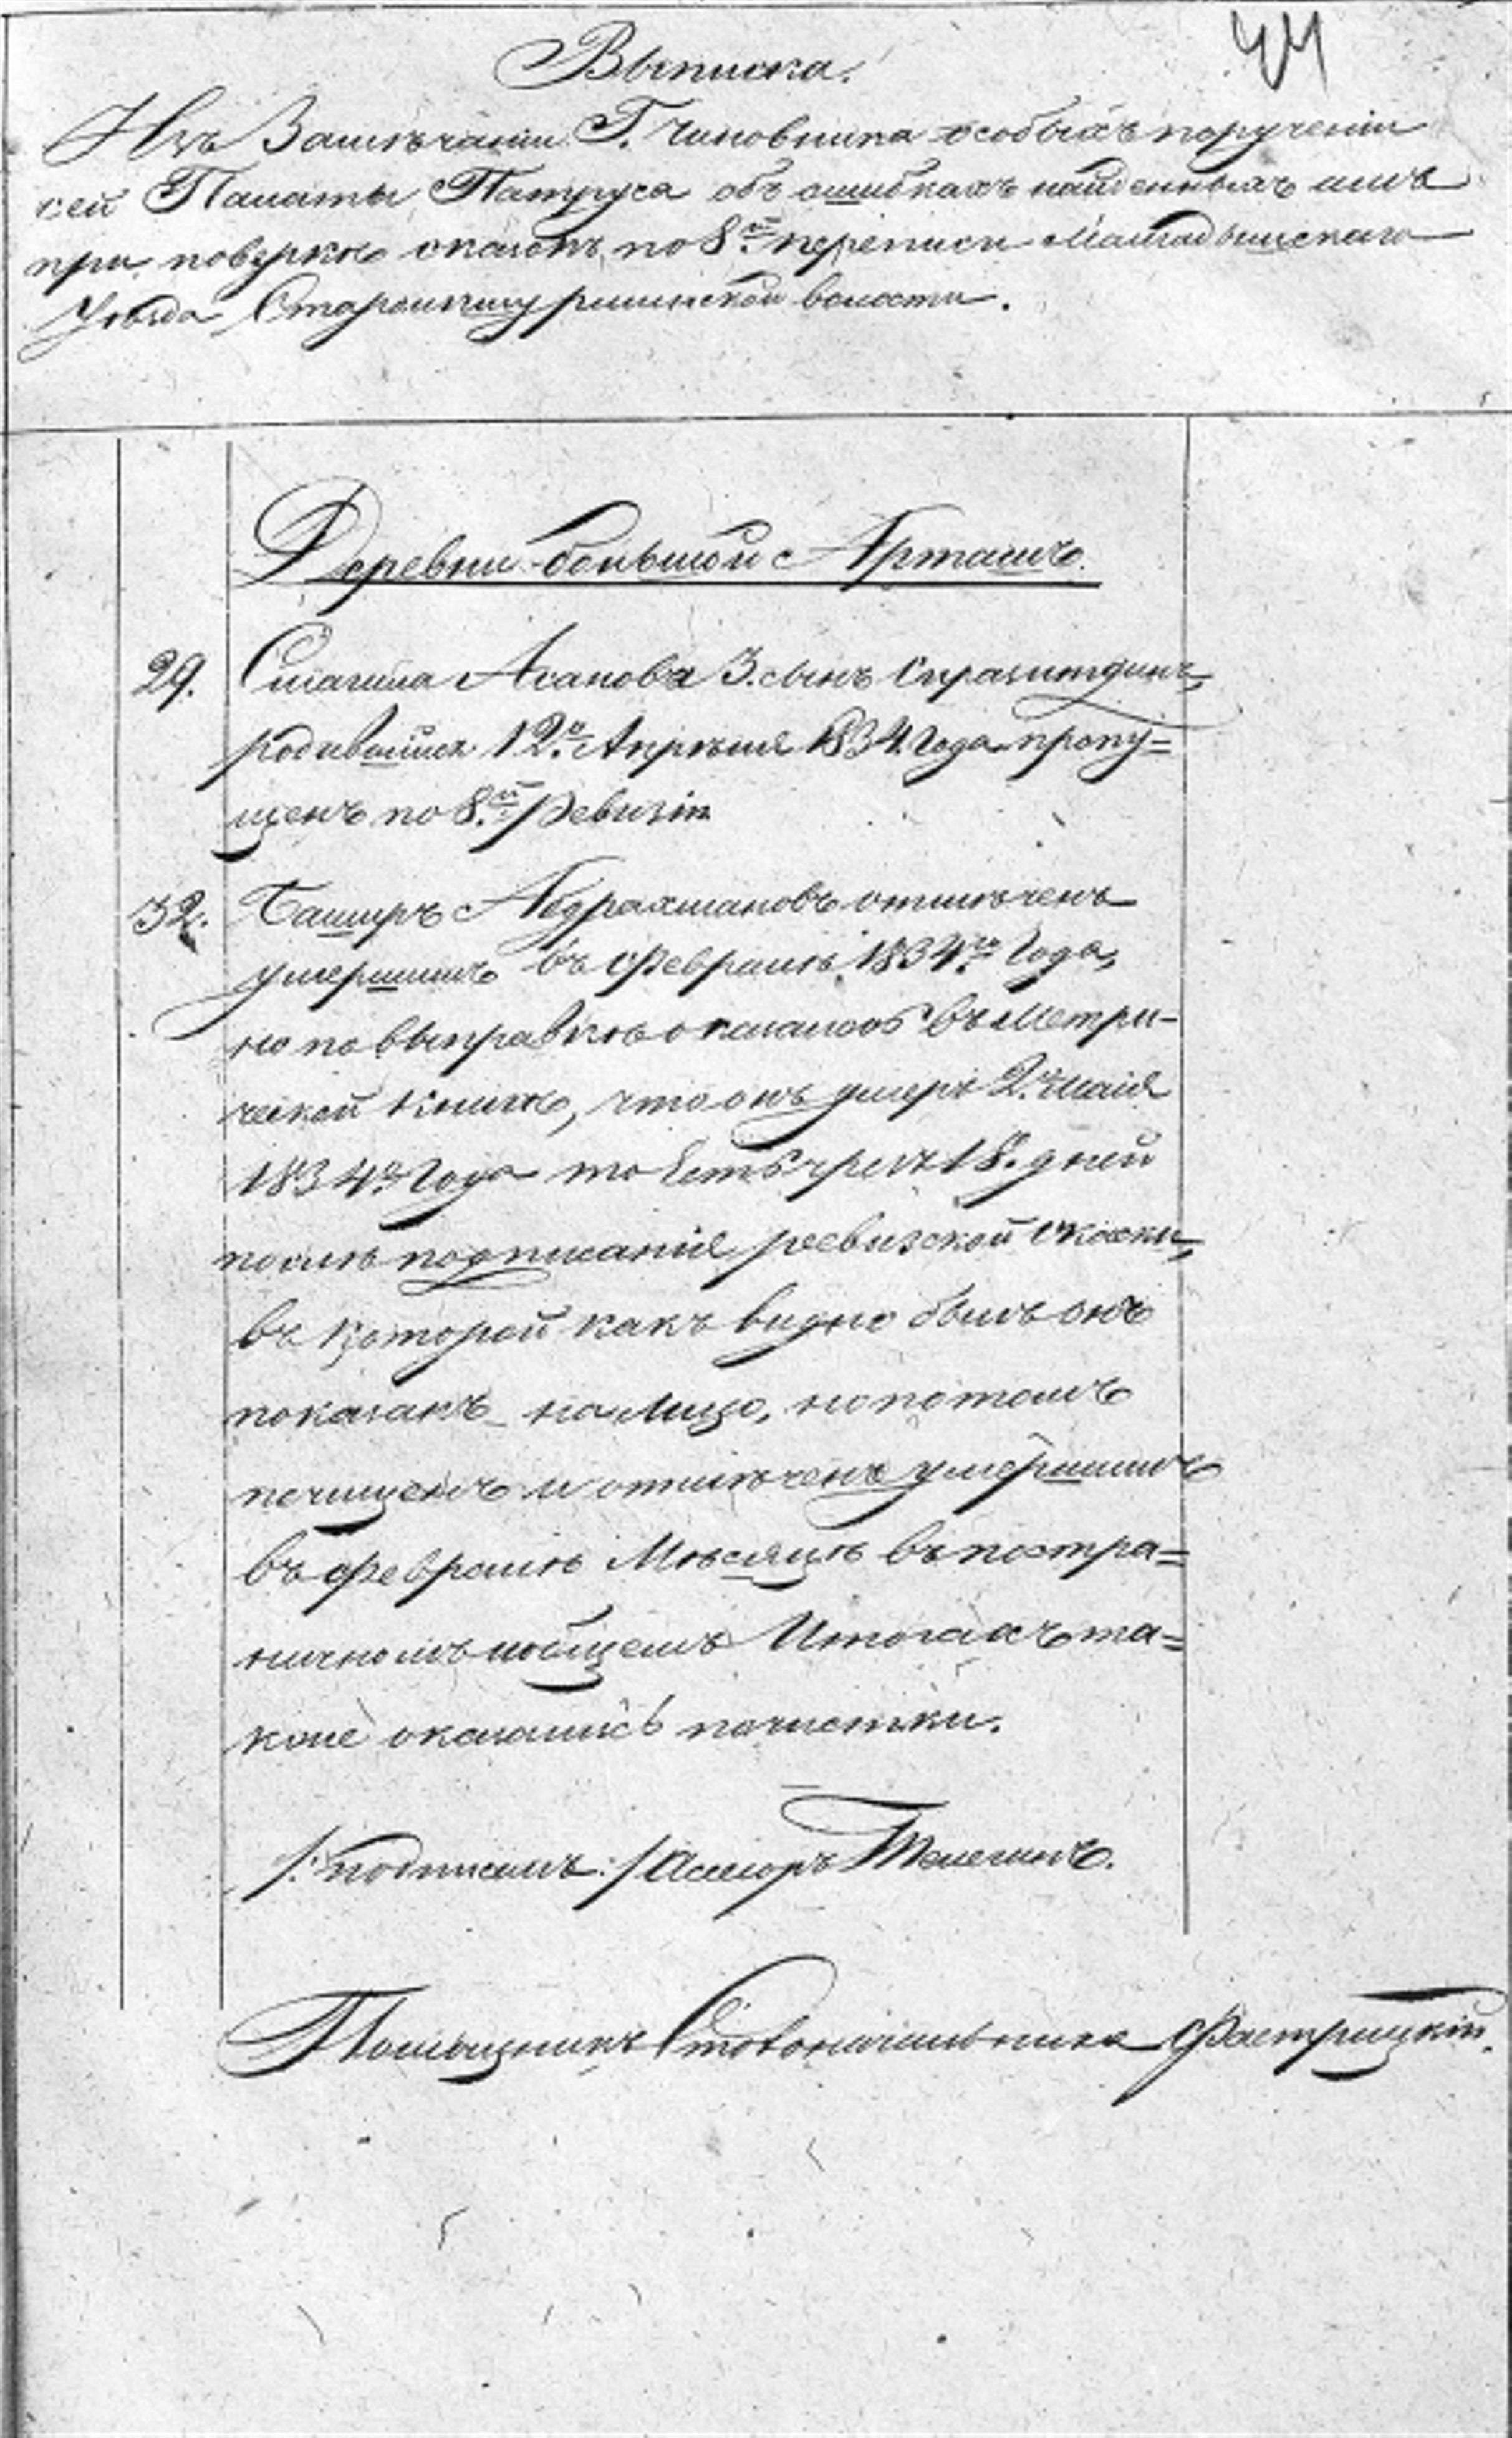 44
Выписка.
Изъ Замѣчаній Г. Чиновника особыхъ порученій
сей Палаты Патруса объ ошибкахъ найденныхъ имъ
при повѣркѣ сказокъ по 8й переписи Мамадышскаго
Уѣзда Староикшурминской волости.
Деревни большой Арташъ.
29. Смагила Асанова 3. сынъ Сиразитдинъ,
родившійся 12го Апрѣля 1834 Года пропу=
щенъ по 8й Ревизіи
32. Баширъ Абдрахмановъ отмѣченъ
умершимъ въ Февралѣ 1834го Года,
но по выправкѣ оказалось въ Метри-
ческой книгѣ, что онъ умеръ 2го Маія
1834го Года то есть чрезъ 18. дней
послѣ подписанія ревизской сказки,
въ которой какъ видно былъ онъ
показанъ на лицо, но потомъ
почищенъ и отмѣченъ умершимъ
въ Февралѣ Мѣсяцѣ въ постра=
ничномъ и общемъ Итогахъ та=
кже оказались почистки.
/:подписалъ:/ Ассесоръ Телегинъ.
Помощникъ Столоначальника